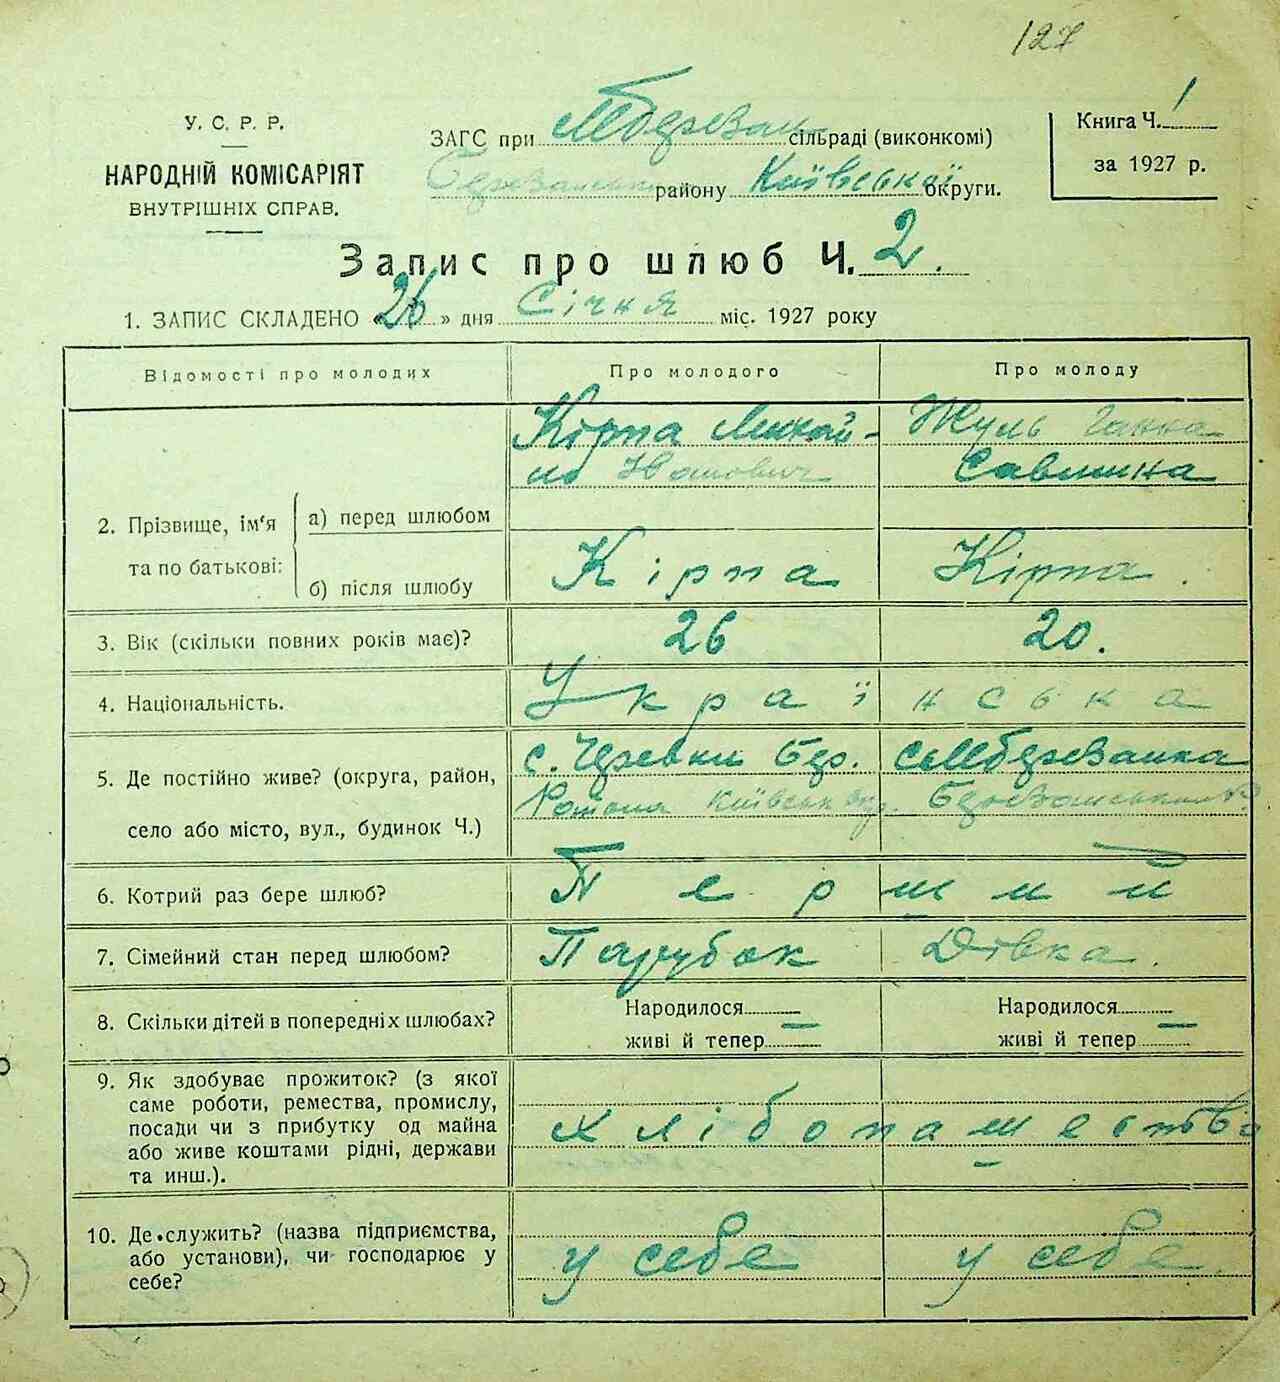 127
У. С. Р. Р.
НАРОДНІЙ КОМІСАРІЯТ
ВНУТРІШНІХ СПРАВ.
ЗАГС при Мберезан сільраді (виконкомі)
Березанськ району Київської округи.
Книга Ч. 1
за 1927 р.
Запис про шлюб Ч. 2.
1. ЗАПИС СКЛАДЕНО «26» дня Січня міс. 1927 року
Відомості про молодих
Про молодого
Про молоду
2. Прізвище, ім'я та по батькові:
а) перед шлюбом
Кірпа Микой-
ло Іванович
Жуль Ганна
Савишна
б) після шлюбу
Кірпа
Кірпа.
3. Вік (скільки повних років має)?
26
20.
4. Національність.
Українська
5. Де постійно живе? (округа, район,
село або місто, вул., будинок Ч.)
с. Черевки Бер.
Района Київськ окр.
с. Мберезанка
Березанського р.
6. Котрий раз бере шлюб?
Перший
7. Сімейний стан перед шлюбом?
Парубок
Дівка.
8. Скільки дітей в попередніх шлюбах?
Народилося —
живі й тепер
Народилося —
живі й тепер
9. Як здобуває прожиток? (з якої
саме роботи, ремества, промислу,
посади чи з прибутку од майна
або живе коштами рідні, держави
та инш.).
Хлібопашество
10. Де служить? (назва підприємства,
або установи), чи господарює у
себе?
у себе
у себе